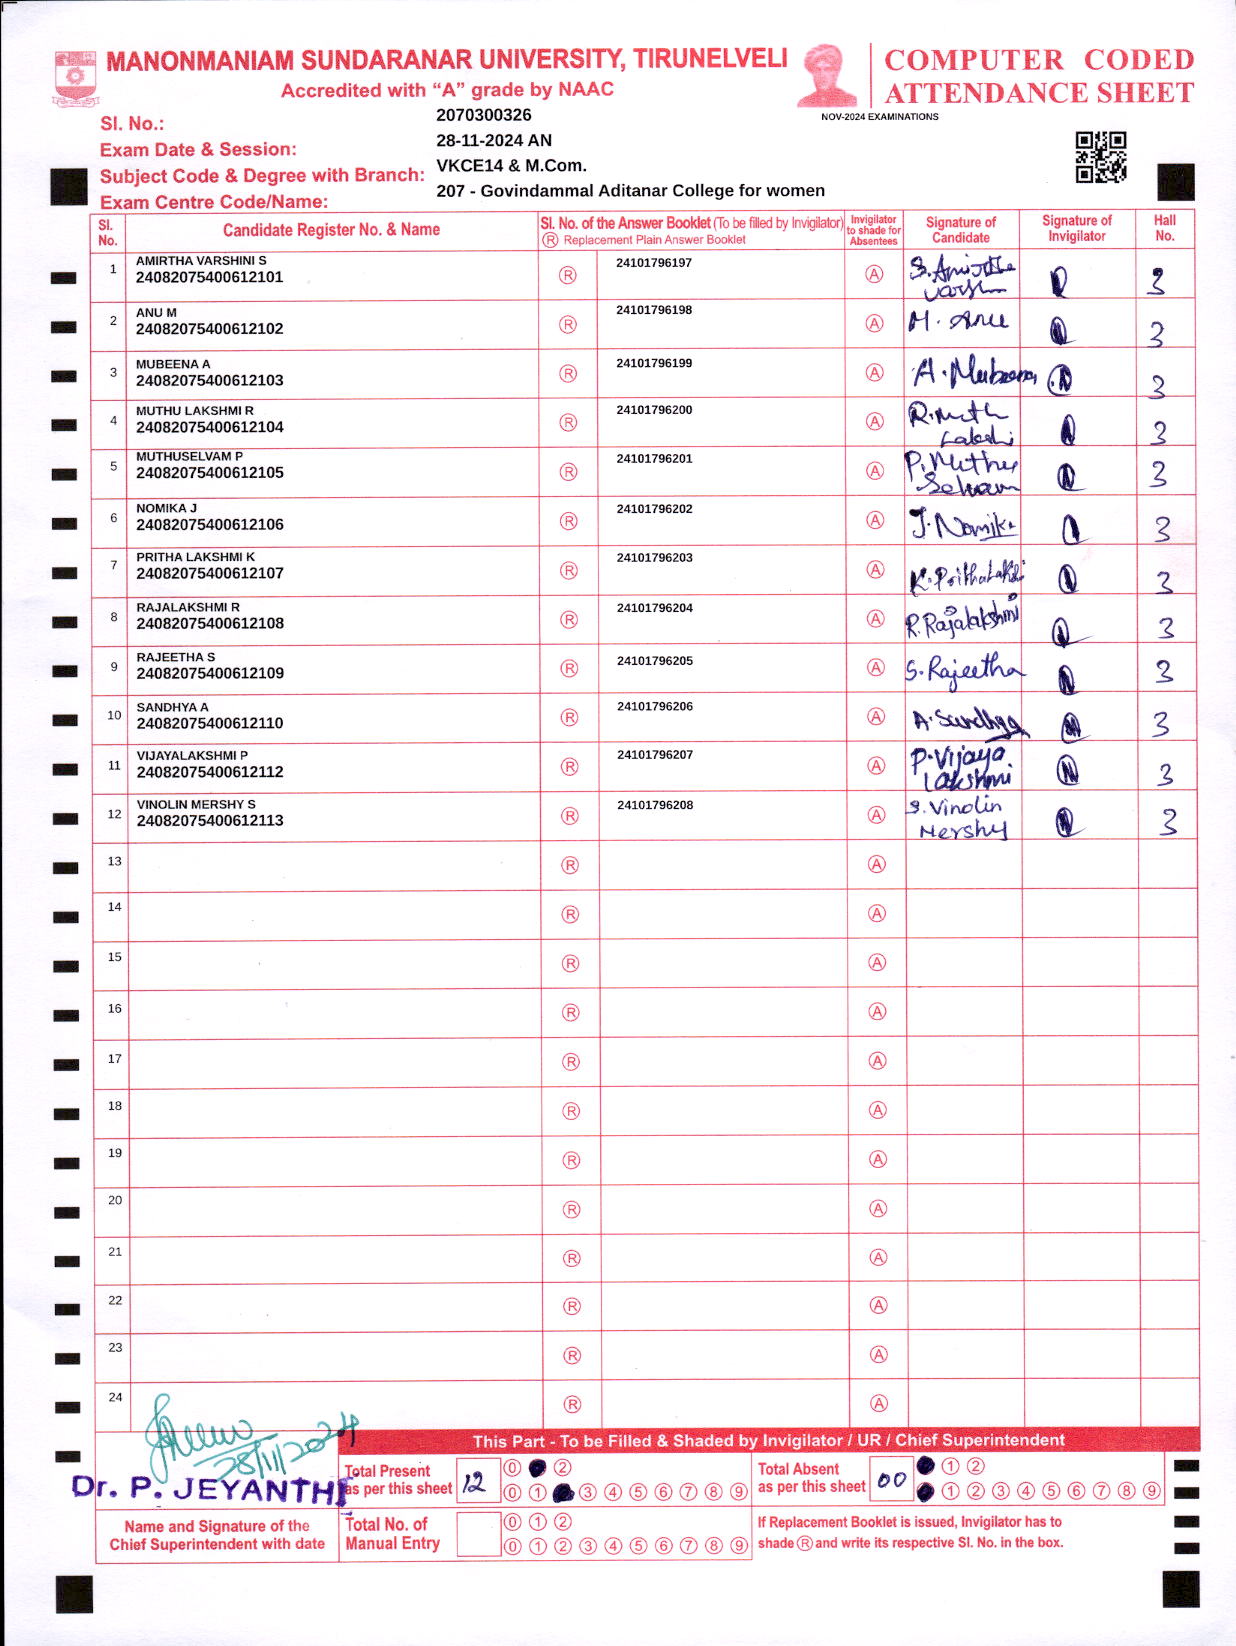 MANONMANIAM SUNDARANAR UNIVERSITY, TIRUNELVELI
Accredited with “A” grade by NAAC
COMPUTER CODED
ATTENDANCE SHEET
NOV-2024 EXAMINATIONS
Sl. No.: 2070300326
Exam Date & Session: 28-11-2024 AN
Subject Code & Degree with Branch: VKCE14 & M.Com.
Exam Centre Code/Name: 207 - Govindammal Aditanar College for women
Sl. No. Candidate Register No. & Name Sl. No. of the Answer Booklet (To be filled by Invigilator) Ⓡ Replacement Plain Answer Booklet Invigilator to shade for Absentees Signature of Candidate Signature of Invigilator Hall No.
1 AMIRTHA VARSHINI S
24082075400612101 Ⓡ 24101796197 Ⓐ 3
2 ANU M
24082075400612102 Ⓡ 24101796198 Ⓐ M. Anu 3
3 MUBEENA A
24082075400612103 Ⓡ 24101796199 Ⓐ A. Mubeena 3
4 MUTHU LAKSHMI R
24082075400612104 Ⓡ 24101796200 Ⓐ 3
5 MUTHUSELVAM P
24082075400612105 Ⓡ 24101796201 Ⓐ P. Muthu Selvam 3
6 NOMIKA J
24082075400612106 Ⓡ 24101796202 Ⓐ J. Nomika 3
7 PRITHA LAKSHMI K
24082075400612107 Ⓡ 24101796203 Ⓐ 3
8 RAJALAKSHMI R
24082075400612108 Ⓡ 24101796204 Ⓐ R. Rajalakshmi 3
9 RAJEETHA S
24082075400612109 Ⓡ 24101796205 Ⓐ S. Rajeetha 3
10 SANDHYA A
24082075400612110 Ⓡ 24101796206 Ⓐ A. Sandhya 3
11 VIJAYALAKSHMI P
24082075400612112 Ⓡ 24101796207 Ⓐ P. Vijaya lakshmi 3
12 VINOLIN MERSHY S
24082075400612113 Ⓡ 24101796208 Ⓐ S. Vinolin Mershy 3
13 Ⓡ Ⓐ
14 Ⓡ Ⓐ
15 Ⓡ Ⓐ
16 Ⓡ Ⓐ
17 Ⓡ Ⓐ
18 Ⓡ Ⓐ
19 Ⓡ Ⓐ
20 Ⓡ Ⓐ
21 Ⓡ Ⓐ
22 Ⓡ Ⓐ
23 Ⓡ Ⓐ
24 Ⓡ Ⓐ
28/11/2024
Dr. P. JEYANTHI
Name and Signature of the
Chief Superintendent with date
This Part - To be Filled & Shaded by Invigilator / UR / Chief Superintendent
Total Present
as per this sheet 12
0 2
0 1 3 4 5 6 7 8 9
Total Absent
as per this sheet 00
1 2
1 2 3 4 5 6 7 8 9
Total No. of
Manual Entry
0 1 2
0 1 2 3 4 5 6 7 8 9
If Replacement Booklet is issued, Invigilator has to
shade Ⓡ and write its respective Sl. No. in the box.